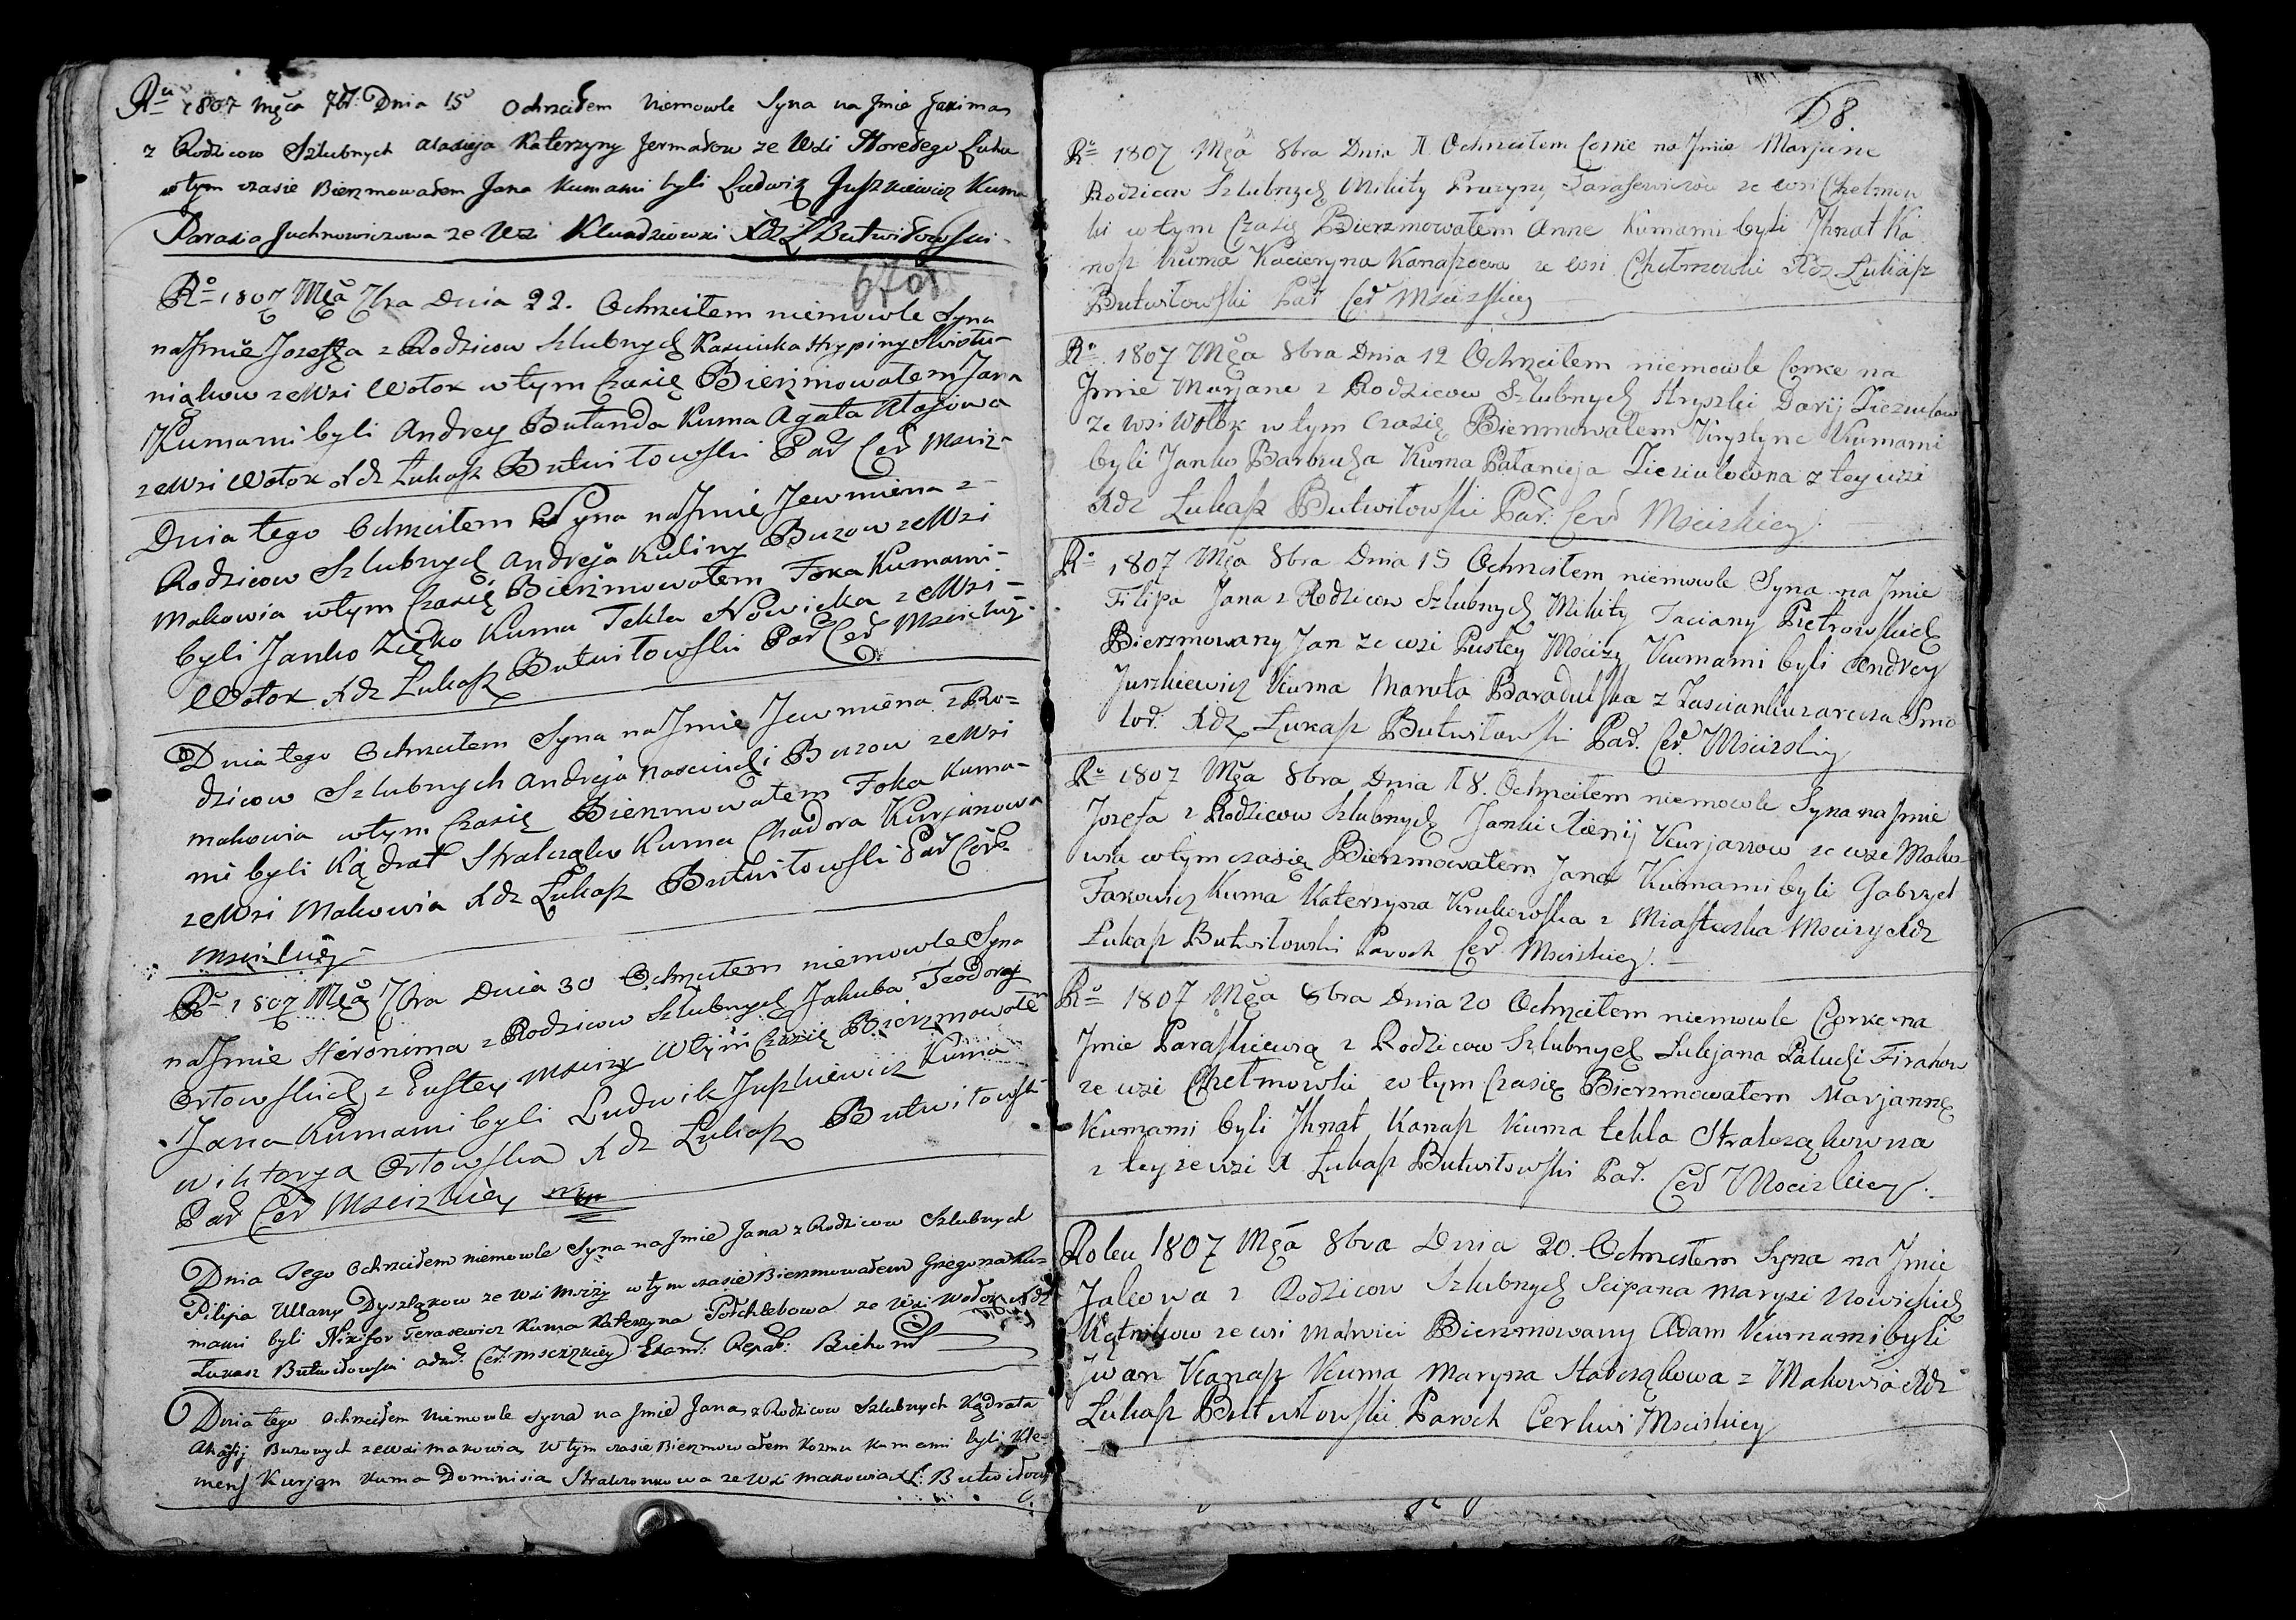 Ru 1807 Męca 7br: Dnia 15 Ochrzciłem Niemowle Syna na Jmie Jakima
z Rodzicow Szlubnych Katerzyny Jermakow ze Wsi
w tym czasie Bierzmowałem Jana Kumami byli Ludwik Juszkiewicz Kuma
Parasia Juchnowiczowa ze Wsi Xdz Ł Butwiłowski
67 od
Ro 1807 Męa 7bra Dnia 22. Ochrzciłem niemowle Syna
na Jmie Jozefa z Rodzicow Szlubnych Hrypiny
niakow ze Wsi Wołok w tym Czasię Bierzmowałem Jana
Kumami byli Andrey Bułanda Kuma Agata
ze Wsi Wołok Xdz Łukasz Butwiłowski Par Cer Msciż-
Dnia tego Ochrzciłem Syna na Jmie Jewmiena z
Rodzicow Szlubnych Andreja Kuliny Buzow ze Wsi
Makowia w tym Czasię Bierzmowałem Foka Kumami
byli Janko Kuma Tekla Nowicka ze Wsi
Wołok Xdz Łukasz Butwiłowski Par Cer
Dnia tego Ochrzciłem Syna na Jmie Jewmiena z Ro=
dzicow Szlubnych Andreja Buzow ze Wsi
makowia w tym Czasię Bierzmowałem Foka Kuma-
mi byli Kądrat Strakczałko Kuma Chadora Kurjanowa
ze Wsi Makowia Xdz Łukasz Butwiłowski Par Cer
Ro 1807 Męa 7bra Dnia 30 Ochrzciłem niemowle Syna
na Jmie Heronima z Rodzicow Szlubnych Jakuba Teodory
Orłowskich z Pustey Msciży W tym Czasię Bierzmowołe
Jana Kumami byli Ludwik Juszkiewicz Kuma
wiktorya Orłowska Xdz Łukasz Butwiłowsk
Par Cer Mscizkiey
Dnia Tego Ochrzciłem niemowle Syna na Jmie Jana z Rodzicow Szlubnych
Pilipa Ullany ze Wsi Msiży w tym czasie Bierzmowałem Grzegorza Ku=
mami byli Nikifor Terasewicz Kuma Katerzyna ze Wsi Wołok Xdz
Łukasz Butwiłowski Cer: Mscizkiey
Dnia tego Ochrzciłem Niemowle Syna na Jmie Jana z Rodzicow Szlubnych Kądrata
Buzowych ze Wsi makowia W tym czasie Bierzmowałem Kozmu kumami byli Kle-
mens Kurjan Kuma Dominisia ze Wsi makowia X Ł: Butwiłows
58.
Ro 1807 Męa 8bra Dnia Ochrzciłem Corke na Jmie Marjane
Rodzicow Szlubnych Mikity Pruzyny Tarasewiczow ze wsi Chełmow
ki w tym Czasię Bierzmowałem Anne Kumami byli Jhnat Ka
nasz kuma Kacieryna Kanaszowa ze wsi Chełmowki Xdz Łukasz
Butwiłowski Par Cer Mscizkiey
Ro 1807 Męa 8bra Dnia 12 Ochrzciłem niemowle Corke na
Jmie Marjane z Rodzicow Szlubnych Hryszki Daryj
ze wsi Wołok w tym Czasię Bierzmowałem Krystyne Kumami
byli Janko Kuma z tey wsi
Xdz Łukasz Butwiłowski Par: Cer Mscizkiey
Ro 1807 Męa 8bra Dnia 15 Ochrzciłem niemowle Syna na Jmie
Filipa Jana z Rodzicow Szlubnych Mikity Taciany Pietrowskich
Bierzmowany Jan ze wsi Pustey Msciży Kumami byli Andrey
Juszkiewicz Kuma Maruta Baradulska z Smo
Xdz Łukasz Butwiłowski Par. Cer. Mscizkiey
Ro 1807 Męa 8bra Dnia 18. Ochrzciłem niemowle Syna na Jmie
Jozefa z Rodzicow Szlubnych Janki Kurjanow ze wsi Mako
wia w tym czasię Bierzmowałem Jana Kumami byli Gabryel
Kuma Katerzyna Krukowska z Miasteczka Msciży Xdz
Łukasz Butwiłowski Paroch Cer Mscizkiey.
Ro 1807 Męa 8bra Dnia 20 Ochrzciłem niemowle Corke na
Jmie Paraskiewią z Rodzicow Szlubnych Firakow
ze wsi Chełmowki w tym Czasię Bierzmowałem Marjannę
Kumami byli Jhnat Kanasz Kuma tekla
z tey ze wsi X Łukasz Butwiłowski Par. Cer Mscizkiey.
Roku 1807 Męa 8bra Dnia 20. Ochrzciłem Syna na Jmie
z Rodzicow Szlubnych Scipana Marysi Nowickich
ze wsi Bierzmowany Adam Kumami byli
Jwan Kanasz Kuma Maryna z Makowia Xdz
Łukasz Butwiłowski Paroch Cerkwi Mscizkiey